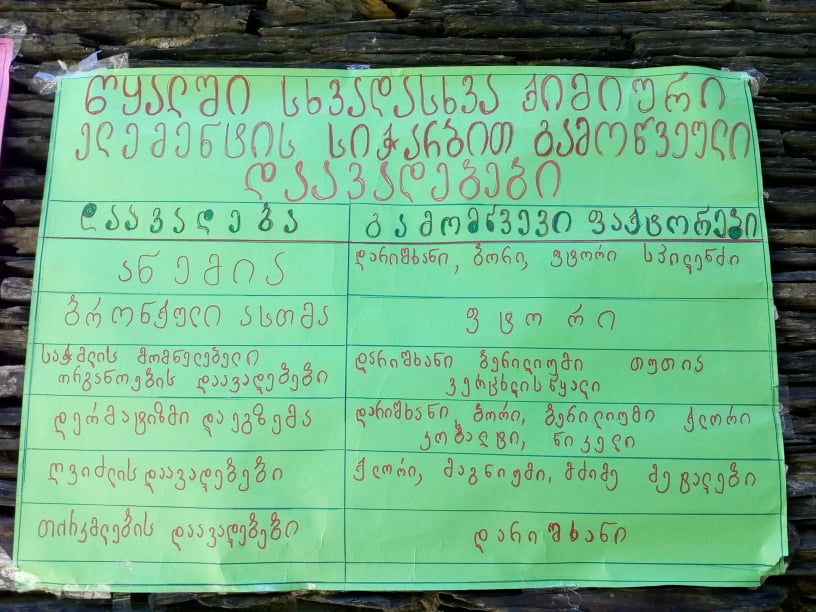 წყალში სხვადასხვა ქიმიური
ელემენტის სიჭარბით გამოწვეული
დაავადებები
დაავადება გამომწვევი ფაქტორები
ანემია დარიშხანი, ბორი, ფტორი სპილენძი
ბრონქული ასთმა ფტორი
საჭმლის მომნელებელი
ორგანოების დაავადებები
დარიშხანი ბერილიუმი თუთია
ვერცხლისწყალი
დერმატიზმი და ეგზემა
დარიშხანი, ბორი, ბერილიუმი ქლორი
კობალტი, ნიკელი
ღვიძლის დაავადებები ქლორი, მაგნიუმი, მძიმე მეტალები
თირკმლების დაავადებები დარიშხანი